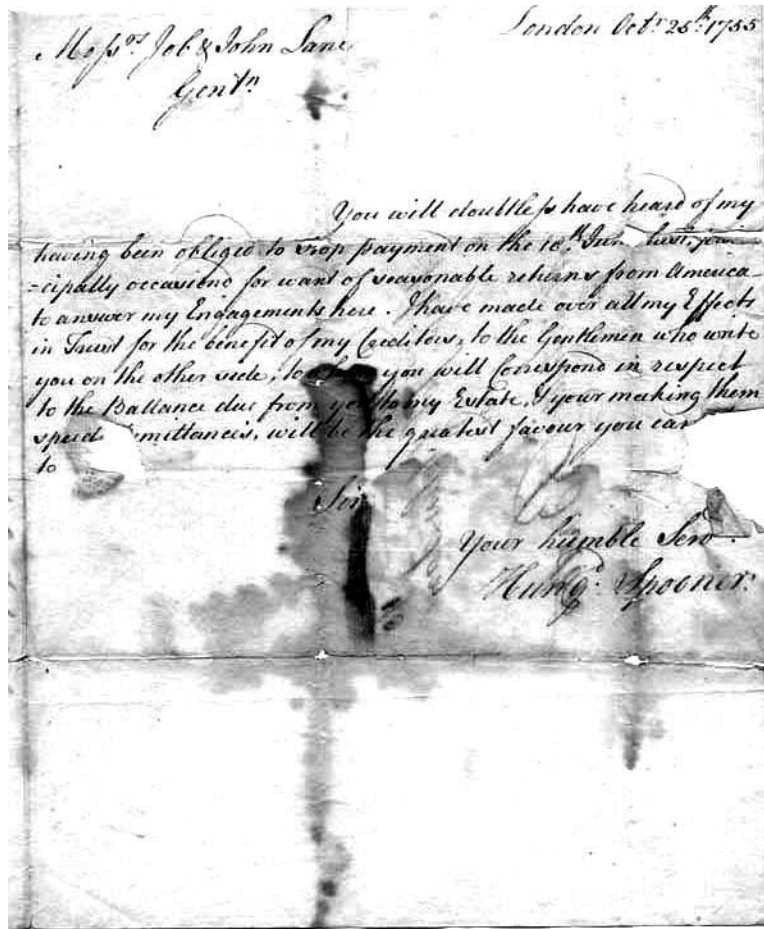 London Octr. 25th. 1755
Messrs Job & John Lane
Gentn
You will doubtless have heard of my
having been obliged to stop payment on the 10th.
=cipally occasiond for want of seasonable returns from America
to answer my Engagements here. I have made over all my Effects
in Trust for the benefit of my Creditors, to the Gentlemen who write
you on the other side, to you will Correspond in respect
to the Ballance due from you to my Estate, & your making them
speed mittances, will be the greatest favour you can
to
Your humble Servt.
Spooner.